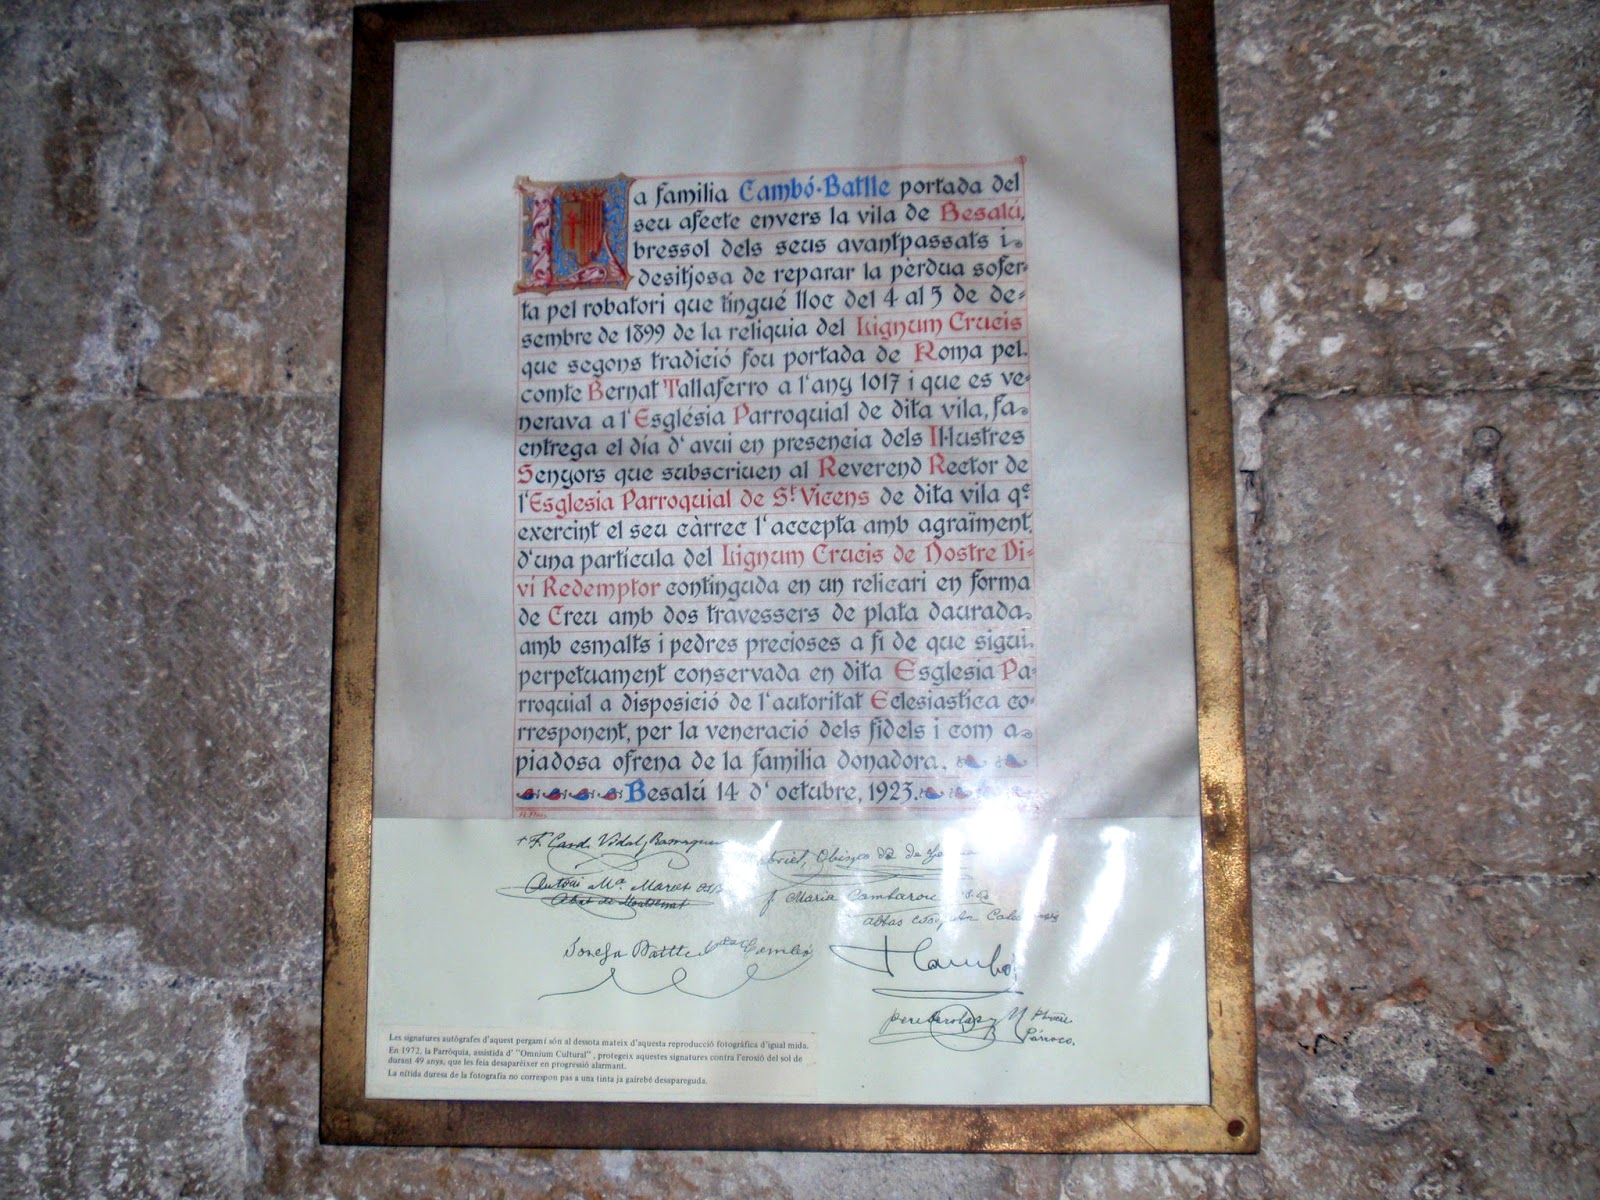 La familia Cambó-Batlle portada del
seu afecte envers la vila de Besalú,
bressol dels seus avantpassats i
desitjosa de reparar la pèrdua sofer-
ta pel robatori que tingué lloc del 4 al 5 de de-
sembre de 1899 de la reliquia del Lignum Crucis
que segons tradició fou portada de Roma pel
comte Bernat Tallaferro a l'any 1017 i que es ve-
nerava a l'Església Parroquial de dita vila, fa
entrega el día d'avui en presencia dels Il·lustres
Senyors que subscriuen al Reverend Rector de
l'Esglesia Parroquial de St Vicens de dita vila qe
exercint el seu càrrec l'accepta amb agraïment,
d'una partícula del Lignum Crucis de Nostre Di-
ví Redemptor continguda en un relicari en forma
de Creu amb dos travessers de plata daurada
amb esmalts i pedres precioses a fi de que sigui
perpetuament conservada en dita Esglesia Pa-
rroquial a disposició de l'autoritat Eclesiastica co-
rresponent, per la veneració dels fidels i com a
piadosa ofrena de la familia donadora.
Besalú 14 d'octubre, 1923.
+ F. Card. Vidal y Barraquer
Antoni Mª Marcet OSB
Abat de Montserrat
Maria
Josefa Batlle Cambó
F Cambó
Párroco.
Les signatures autògrafes d'aquest pergamí són al dessota mateix d'aquesta reproducció fotogràfica d'igual mida.
En 1972, la Parròquia, assistida d' "Omnium Cultural", protegeix aquestes signatures contra l'erosió del sol de
durant 49 anys, que les feia desaparèixer en progressió alarmant.
La nítida duresa de la fotografia no correspon pas a una tinta ja gairebé desapareguda.